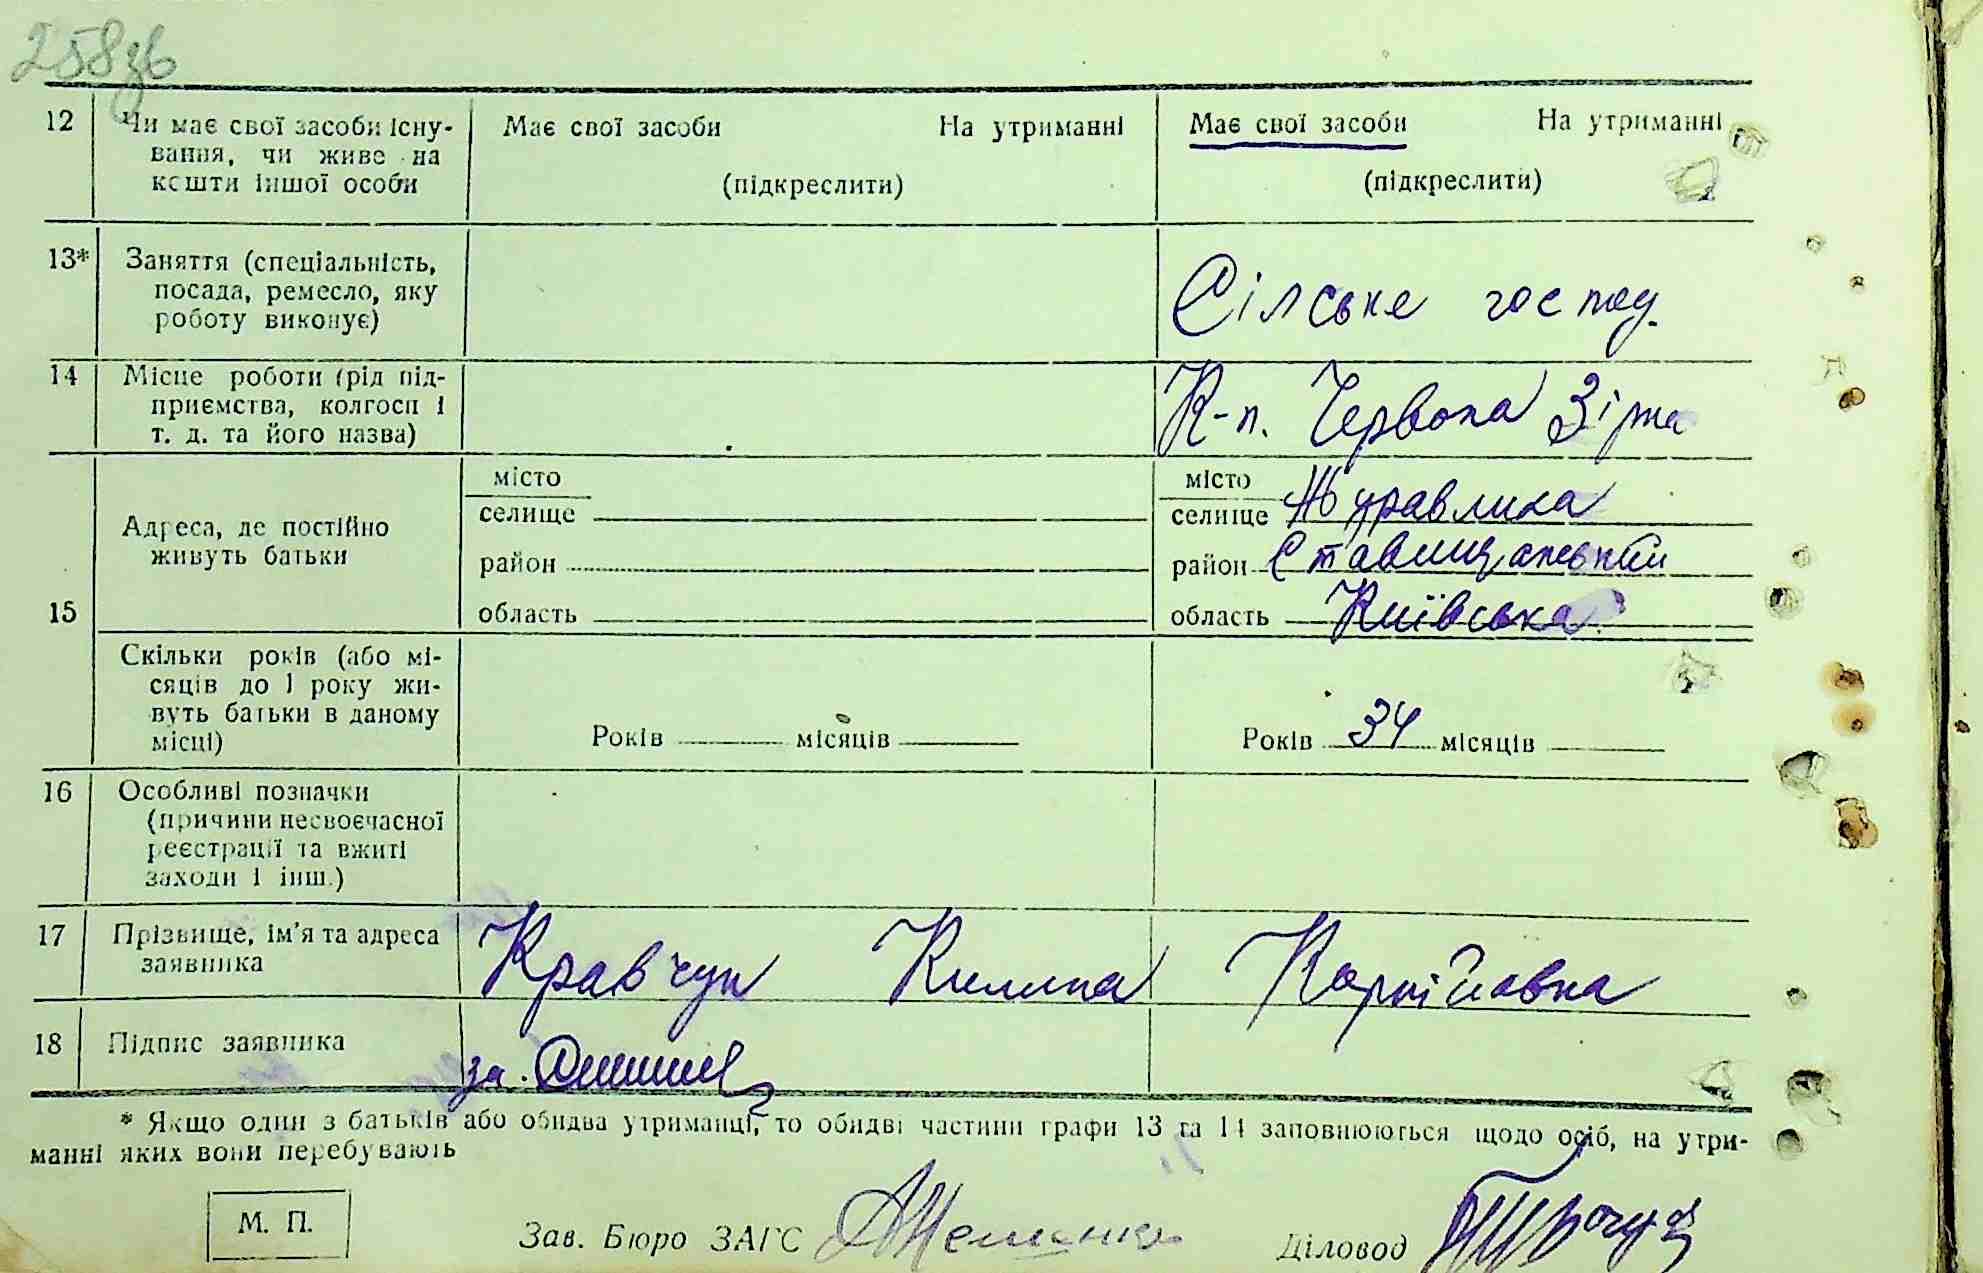 258зв
12 Чи має свої засоби існу- Має свої засоби На утриманні Має свої засоби На утриманні
вання, чи живе на
кошти іншої особи (підкреслити) (підкреслити)
13* Заняття (спеціальність,
посада, ремесло, яку Сілське господ.
роботу виконує)
14 Місце роботи (рід під-
приємства, колгосп і К-п. Червона Зірка
т. д. та його назва)
місто місто
селище селище Журавлиха
Адреса, де постійно
живуть батьки район район Ставищанський
15 область область Київська
Скільки років (або мі-
сяців до 1 року жи-
вуть батьки в даному
місці) Років місяців Років 34 місяців
16 Особливі позначки
(причини несвоєчасної
реєстрації та вжиті
заходи і інш.)
17 Прізвище, ім'я та адреса Кравчук Килина Карпійовна
заявника
18 Підпис заявника за.
* Якщо один з батьків або обидва утриманці, то обидві частини графи 13 та 14 заповнюються щодо осіб, на утри-
манні яких вони перебувають
М. П. Зав. Бюро ЗАГС Діловод